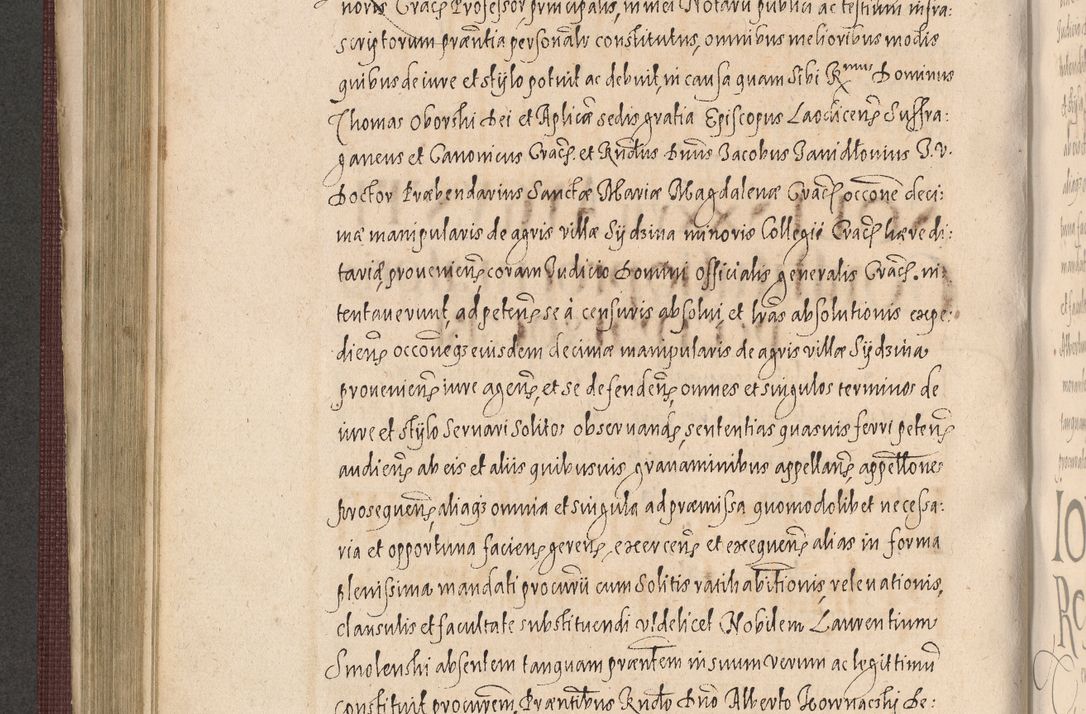 noris Crac. Professor principalis, in mei Notarii publici ac testium infra:
scriptorum prntia personalr constitutus, omnibus melioribus modis
quibus de iure et stylo potuit ac debuit, in causa quam sibi Rmus Dominus
Thomas Oborski Dei et Aplicæ sedis gratia Episcopus Laodicen. Suffra:
ganeus et Canonicus Crac. et Rndus Dnus Jacobus Janidlovius J. V.
Doctor Præbendarius Sanctæ Mariæ Magdalenæ Crac. occone deci:
mæ manipularis de agris villæ Sydzina minoris Collegii Crac. hæredi:
tariæ, provenien. coram Judicio Domini Officialis generalis Crac. in
tentaverunt, ad peten. se à censuris absolui, et lras absolutionis expe:
dien. occoneqз eiusdem decimæ manipularis de agris villæ Sydzina
provenien. iure agen. et se defenden. omnes et singulos terminos de
iure et stylo servari solitos observand. sententias quasvis ferri peten.
audien. ab eis et aliis quibusvis gravaminibus appellan. appellones
prosequen. aliaqз omnia et singula ad præmissa quomodolibet necessa:
ria et opportuna facien. geren. exercen. et exequen. alias in forma
plenissima mandati procurii cum solitis ratihabitionis, relevationis,
clausulis et facultate substituendi vldelicet Nobilem Laurentium
Smolenski absentem tanquam præntem in suum verum ac legittimu
constituit procurem, Præntibus Rndo Dno Alberto Kownacski De:
IO